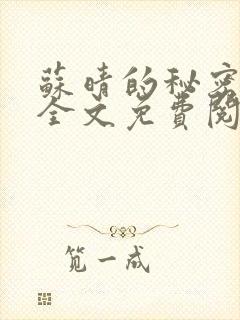 蘇晴的秘密
全文免費閱
笕一成